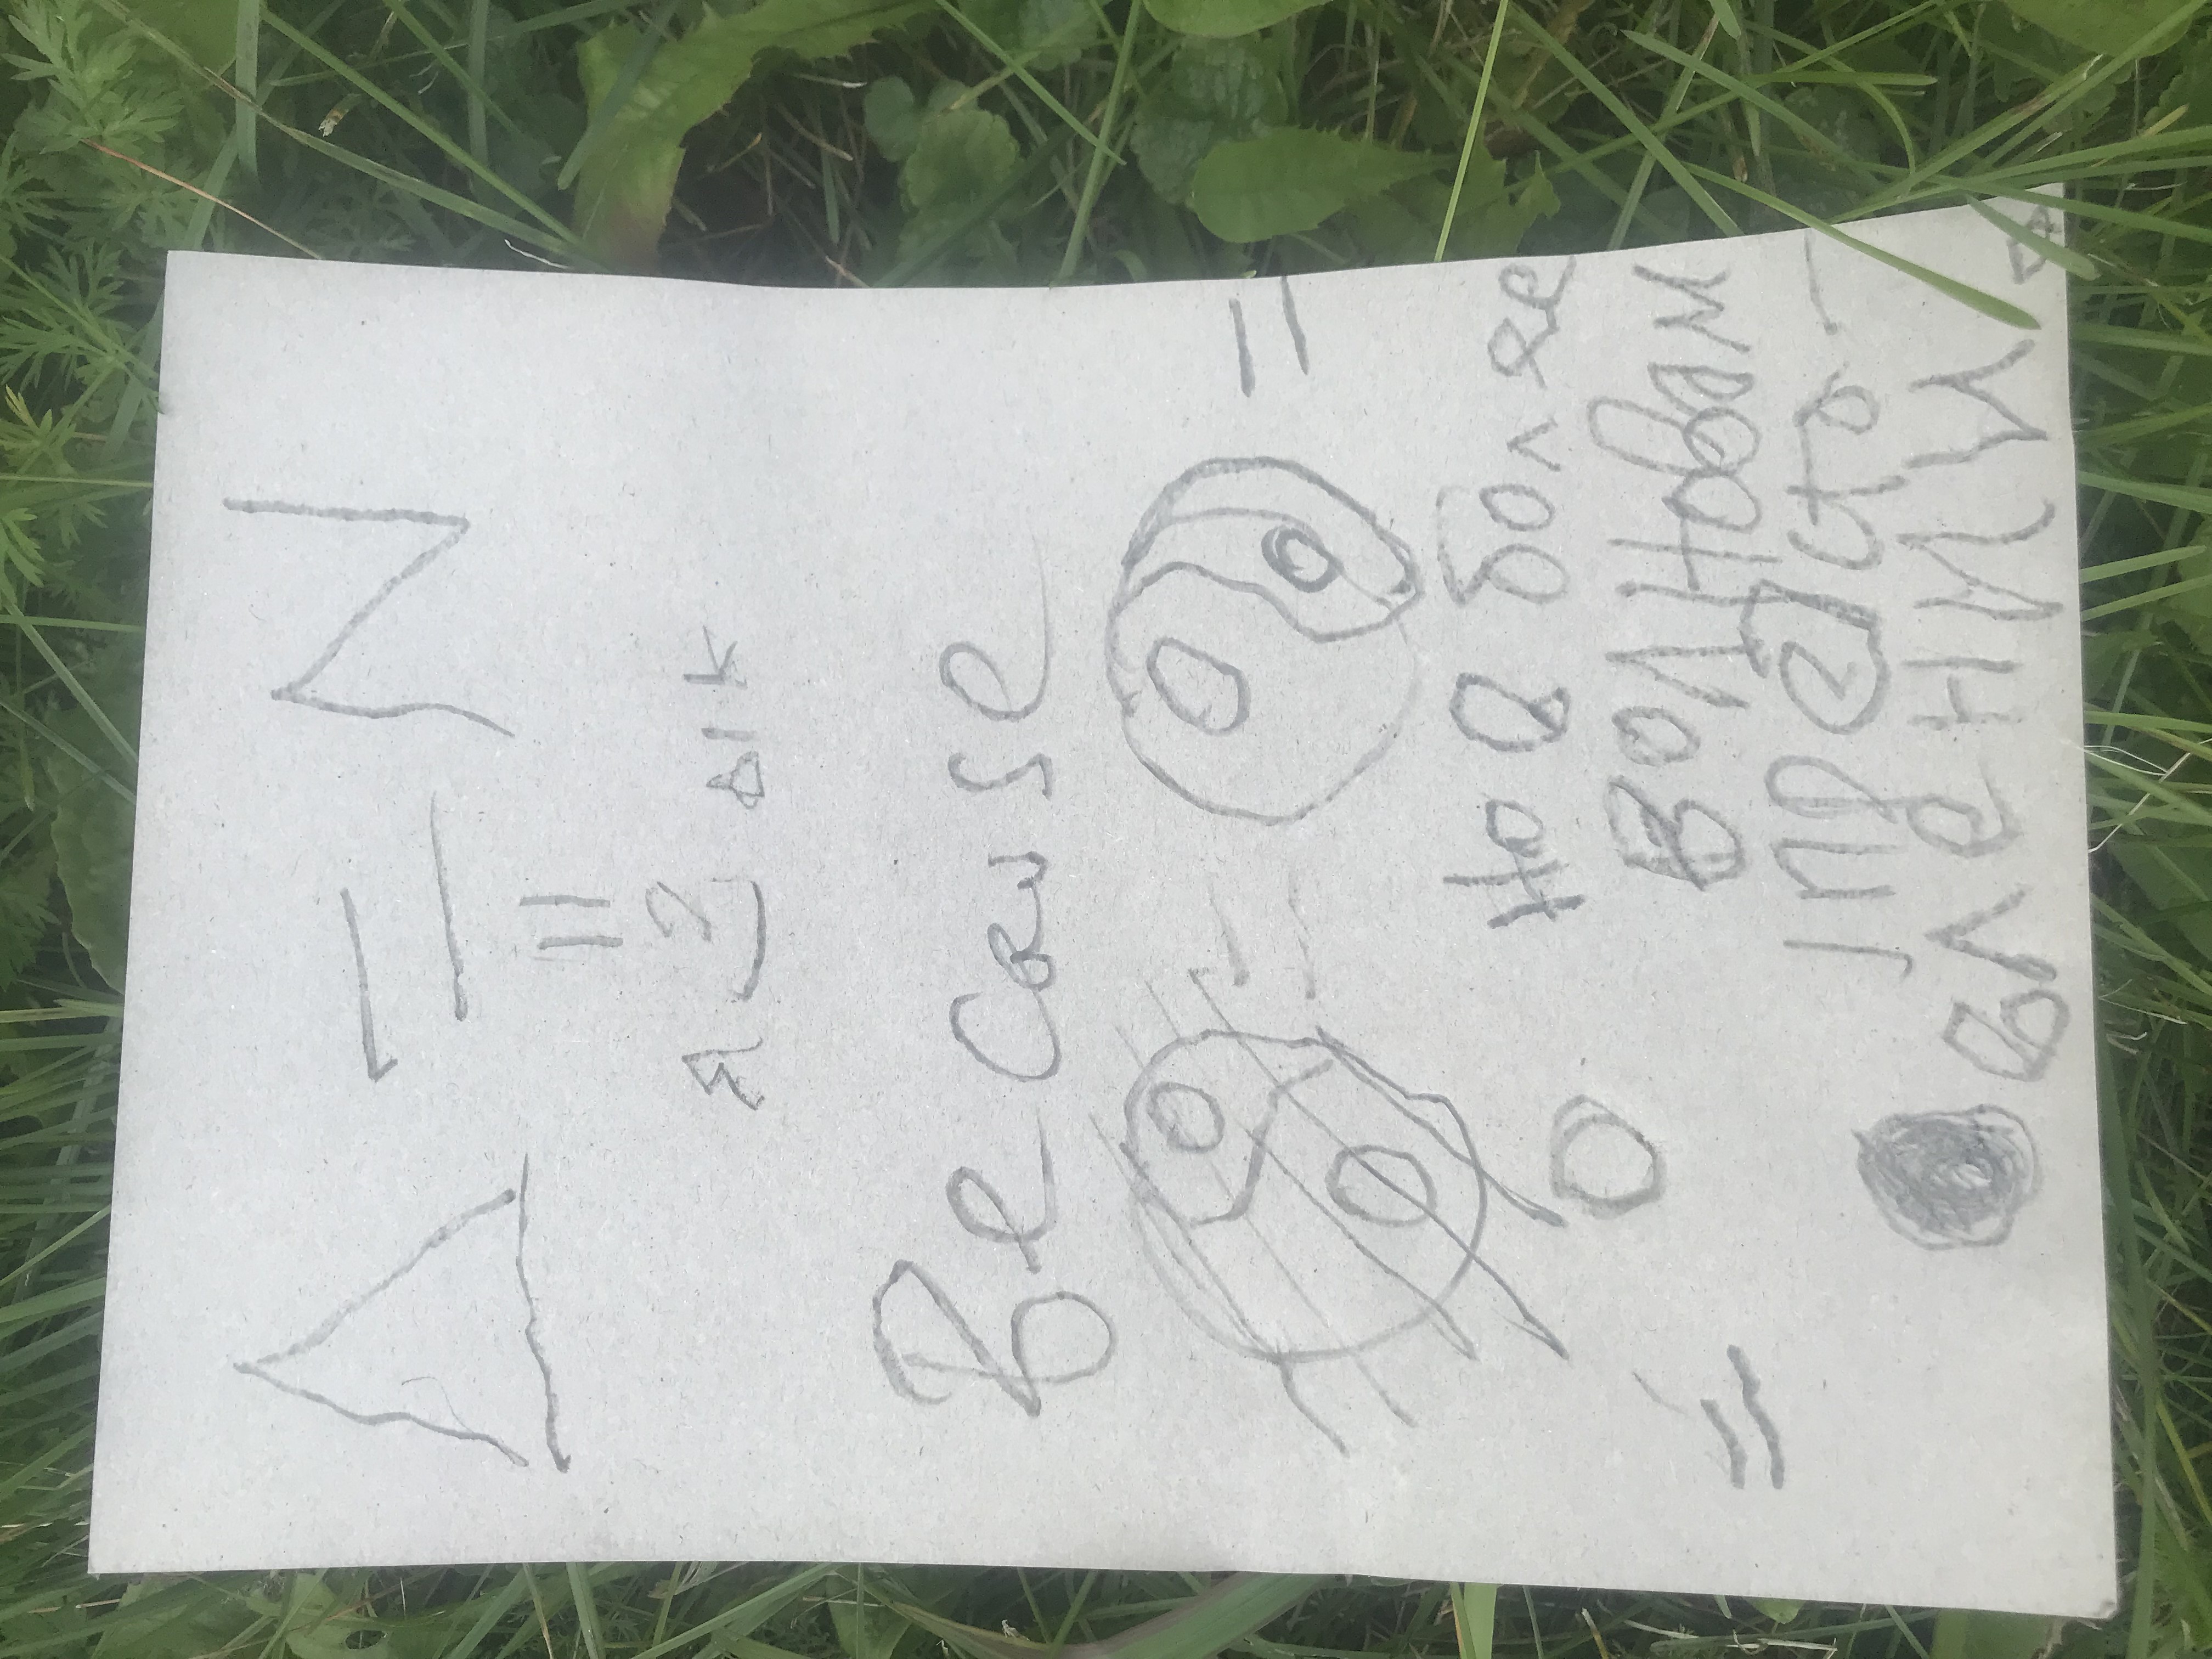 Δ = N
=
я з ык
Because
= =
но в более
волновом
предста-
=
влении.